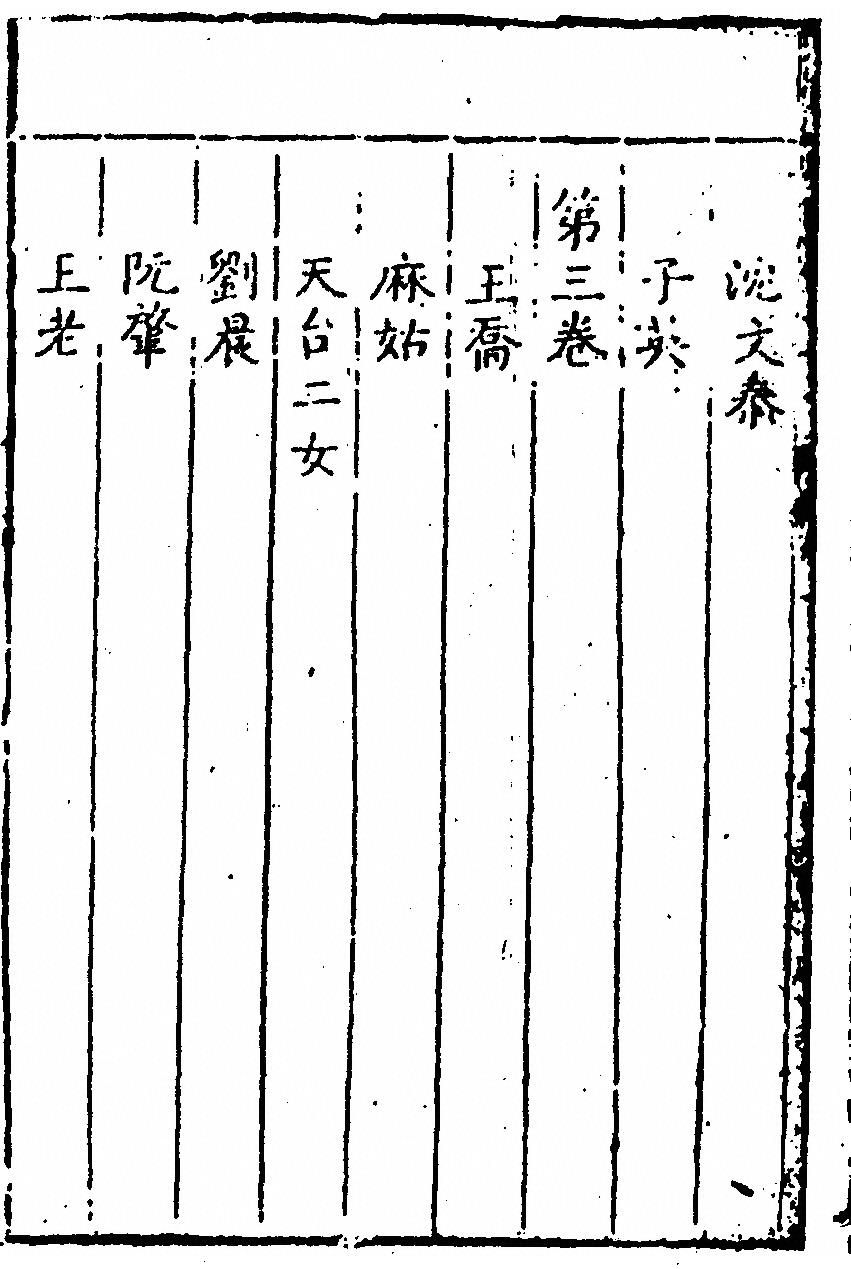 沈文泰
子英
第三卷
王喬
麻姑
天台二女
劉晨
阮肇
王老